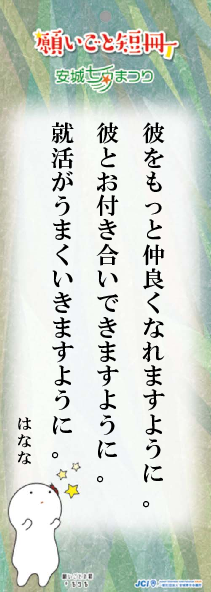 願いごと短冊
安城七夕まつり
彼をもっと仲良くなれますように。
彼とお付き合いできますように。
就活がうまくいきますように。
はなな
JCI